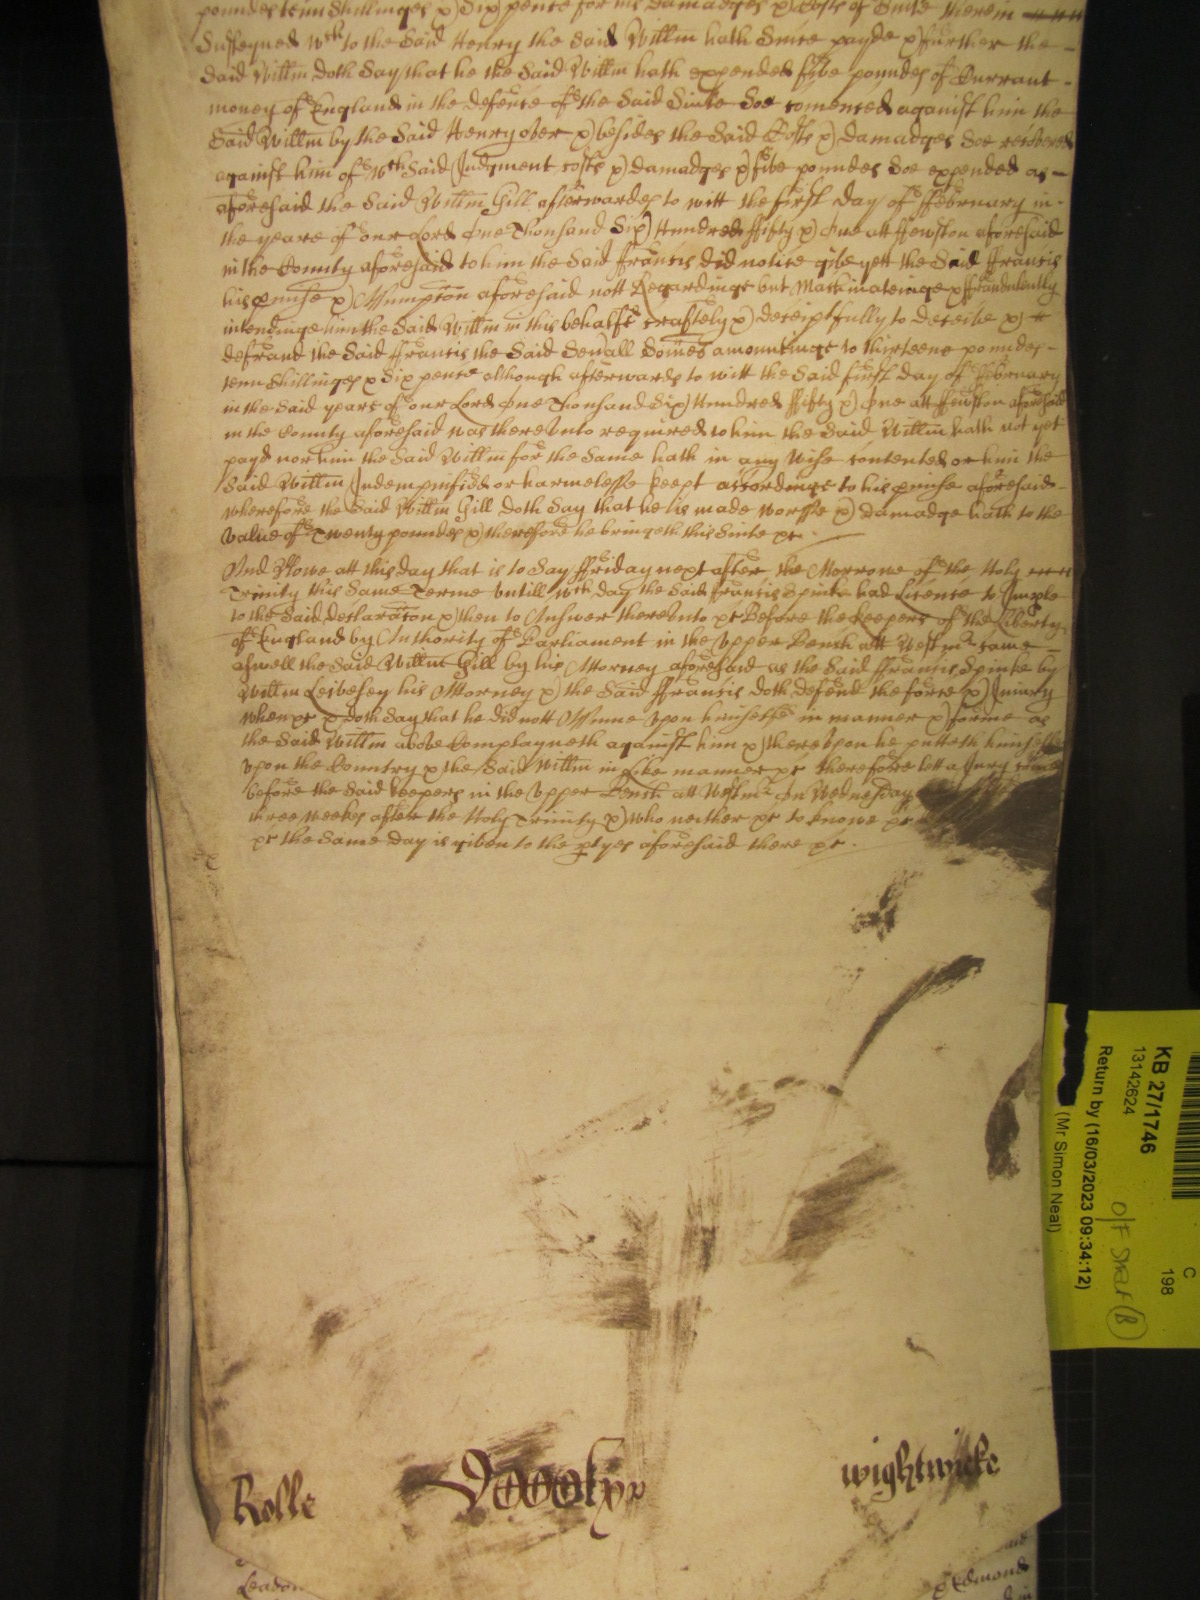 poundes tenn Shillinges & Six pence for his damadges & Costs of Suite therein
Susteyned wch to the Said Henry the Said Willm hath Since payde & further the
Said Willm doth Say that he the Said Willm hath expended five poundes of Currant
money of England in the defence of the Said Suite Soe comenced against him the
Said Willm by the Said Henry over & besides the Said Costs & damadges Soe recovered
against him of wch Said Judgment costs & damadges & five poundes Soe expended as
aforesaid the Said Willm Gill afterwardes to witt the first day of ffebruary in
the yeare of our Lord One Thousand Six Hundred ffifty & One att ffewston aforesaid
in the County aforesaid to him the Said ffrancis did notice give yett the Said ffrancis
his pmise & Assumpcon aforesaid nott Regardinge but Machinateinge & ffraudulently
intendinge him the Said Willm in this behalfe craftely & deceiptfully to deceive &
defraud the Said ffrancis the Said Sevall Somes amountinge to thirteene poundes
tenn Shillinges & Six pence although afterwards to witt the Said first day of ffebruary
in the Said yeare of our Lord One Thousand Six Hundred ffifty & One att ffewston aforesaid
in the County aforesaid was thereunto required to him the Said Willm hath not yet
payd nor him the Said Willm for the Same hath in any wise contented or him the
Said Willm Indempnified or harmelesse keept accordinge to his pmise aforesaid
wherefore the Said Willm Gill doth Say that he is made worsse & damadge hath to the
value of Twenty poundes & therefore he bringeth this Suite &c
And Nowe att this day that is to Say ffriday next after the Morrowe of the Holy
Trinity this Same Terme untill wch day the Said ffrancis Spinke had Licence to Imple
to the Said declaracon & then to Answer thereunto &c Before the keepers of the Liberty
of England by Authority of Parliament in the Upper Bench att Westmr came
aswell the Said Willm Gill by his Attorney aforesaid as the Said ffrancis Spinke by
Willm his Attorney & the Said ffrancis doth defend the force & Injury
when &c & doth Say that he did nott Assume upon himselfe in manner & forme as
the Said Willm above Complayneth against him & thereupon he putteth himselfe
upon the Country & the Said Willm in Like manner &c therefore lett a Jury come
before the Said keepers in the Upper Bench att Westmr On Wednesday
three weekes after the Holy Trinity & who neither &c to knowe &c
&c the Same day is given to the ptyes aforesaid there &c
Rolle
wightwicke
KB 27/1746
13142624
Return by (16/03/2023 09:34:12)
(Mr Simon Neal)
C
198
O/F Shelf (B)
Leadon
Edmond